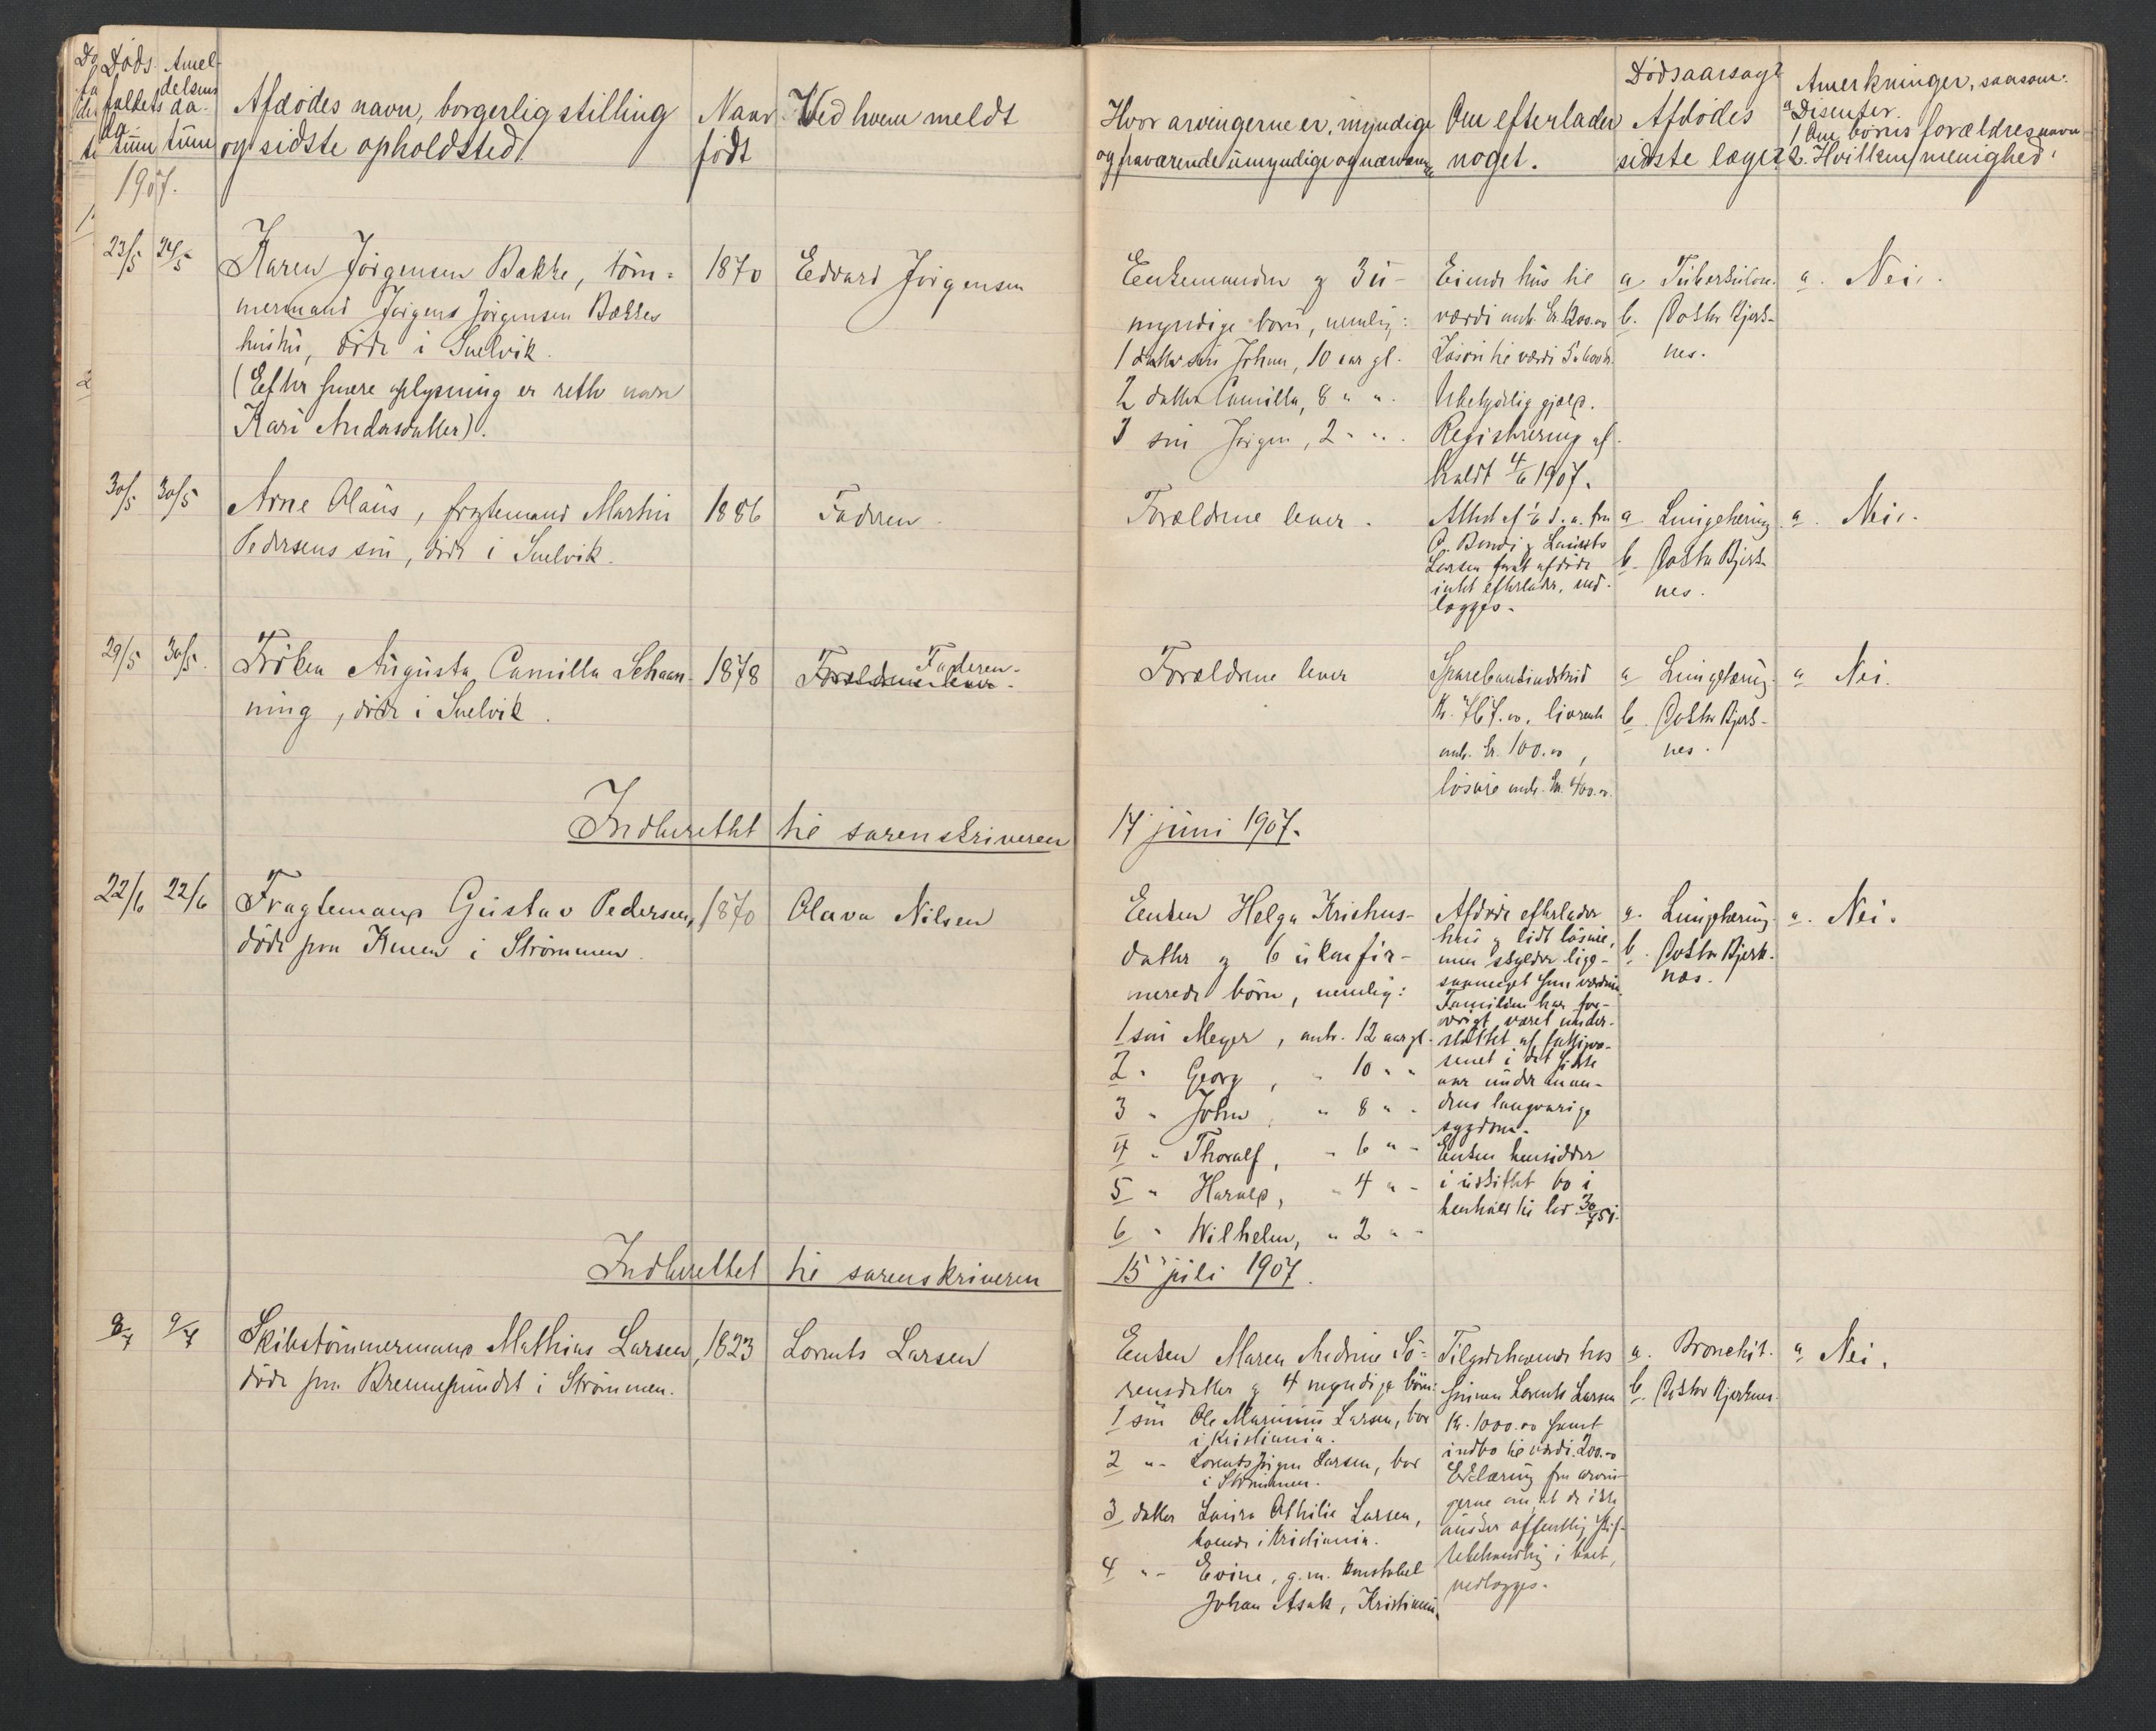 Døds- Anmel-
faldets delsens
da- da-
tum tum
Afdødes navn, borgerlig stilling
og sidste opholdsted.
Naar
født
Ved hvem meldt
Hvor arvingerne er, myndige
og fraværende umyndige og nærværende
Om efterlader
noget.
Dødsaarsag?
Afdødes
sidste læge?
Anmerkninger, saasom:
a Disenter.
1 Om børns forældres navn
2. Hvilken menighed.
1907.
23/5 24/5
Karen Jørgensen Bakke, töm-
mermand Jørgens Jørgensen Bakkes
hustru, döde i Svelvik.
(Efter senere oplysning er rette navn
Kari Andersdatter).
1870
Edvard Jørgensen
Enkemanden og 3 u-
myndige børn, nemlig:
1 Johan, 10 aar gl.
2 datter Camilla, 8 " "
3 søn Jørgen, 2 " "
Eiende hus til
værdi antl. kr.
Løsøre til værdi
Ubehjølig gjæld.
Registrering af-
holdt 4/6 1907.
a Tuberkulose.
b. Doktor Bjerk-
nes.
a. Nei.
30/5 30/5
Arne Olaus, fragtemand Martin
Pedersens søn, døde i Svelvik.
1886
Faderen.
Forældrene lever.
Attest af 1/6 d. a. fra
O. Bondi og Laurits
Larsen for at afdøde
intet efterlader, ved-
lægges.
a Lungetæring
b. Doktor Bjerk-
nes.
a. Nei.
29/5 30/5.
Frøken Augusta Camilla Schaan-
ning, døde i Svelvik.
1878
Faderen.
Forældrene lever.
Forældrene lever
Sparebankindskud
Kr. 767.00, livrente
antl. kr. 100.00,
løsøre antl. kr. 400.00.
a Lungetæring.
b. Doktor Bjerk-
nes.
a Nei.
Indberettet til sorenskriveren
17 juni 1907.
22/6 22/6
Fragtemand Gustav Pedersen,
døde paa Knem i Strømmen.
1870
Olava Nilsen
Enken Helga Kristens-
datter og 6 ukonfir-
merede børn, nemlig:
1 søn Meyer, antl. 12 aar gl.
2 " Georg, " 10 " "
3 " John, " 8 " "
4 " Thoralf, " 6 " "
5 " Harald, " 4 " "
6 " Wilhelm, " 2 " "
Afdøde efterlader
hus og lidt løsøre,
men skylder lige-
saameget som værdien.
Familien har for-
øvrigt været under-
støttet af fattigvæ-
senet i det sidste
aar under man-
dens langvarige
sygdom.
Enken hensidder
i uskiftet bo i
henhold til lov 30/7 51.
a. Lungetæring.
b. Doktor Bjerk-
næs.
a. Nei.
Indberettet til sorenskriveren
15 juli 1907.
8/7 9/7
Skibstømmermand Mathias Larsen,
døde paa Brennesundet i Strømmen.
1823
Lorents Larsen
Enken Maren Andrine Sö-
rensdatter og 4 myndige börn:
1 søn Ole Marinius Larsen, bor
i Kristiania.
2 " Lorents Jørgen Larsen, bor
i Strømmen.
3 datter Laura Othilie Larsen,
boende i Kristiania.
4 " Evine, g. m. konstabel
Johan Asak, Kristiania.
Tilgodehavende hos
sønnen Lorents Larsen
Kr. 1000.00 samt
indbo til værdi 200.00
Erklæring fra arvin-
gerne om, at de ikke
ønsker offentlig skif-
tebehandling i boet,
vedlægges.
a. Bronchit.
b. Doktor Bjerknes.
a Nei.